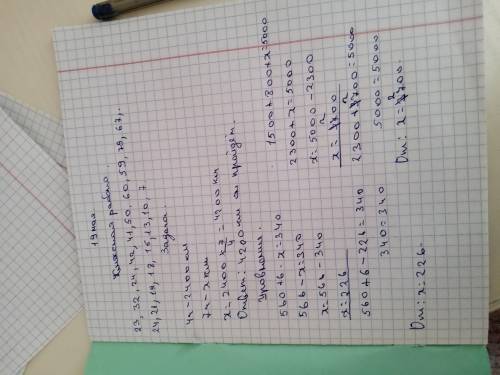 19 мая.
Классная работа.
23, 32, 24, 42, 41, 50, 60, 59, 78, 67,.
24, 21, 19, 18, 15, 13, 10, 7
Задача.
4ч - 2400 км
7ч - x км
x = 2400 × 7/4 = 4200 км
Ответ: 4200 км он пройдёт.
Уравнения.
560 + 6 - x = 340.
566 - x = 340
x = 566 - 340
x = 226
560 + 6 - 226 = 340
340 = 340
От: x = 226.
1500 + 800 + x = 5000
2300 + x = 5000
x = 5000 - 2300
x = 2700
2300 + 2700 = 5000
5000 = 5000
От: x = 2700.